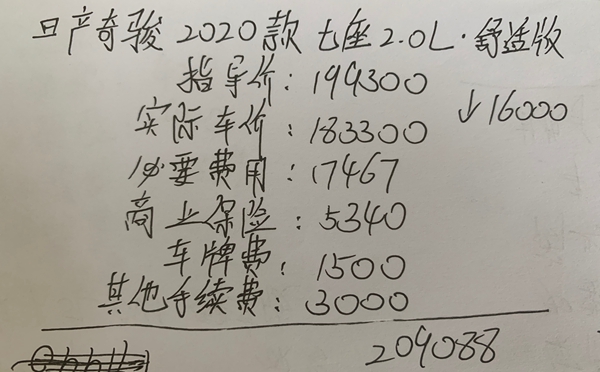 日产奇骏 2020款 七座2.0L·舒适版
指导价：199300
↓16000
实际车价：183300
必要费用：17467
商业保险：5340
车牌费：1500
其他手续费：3000
209088